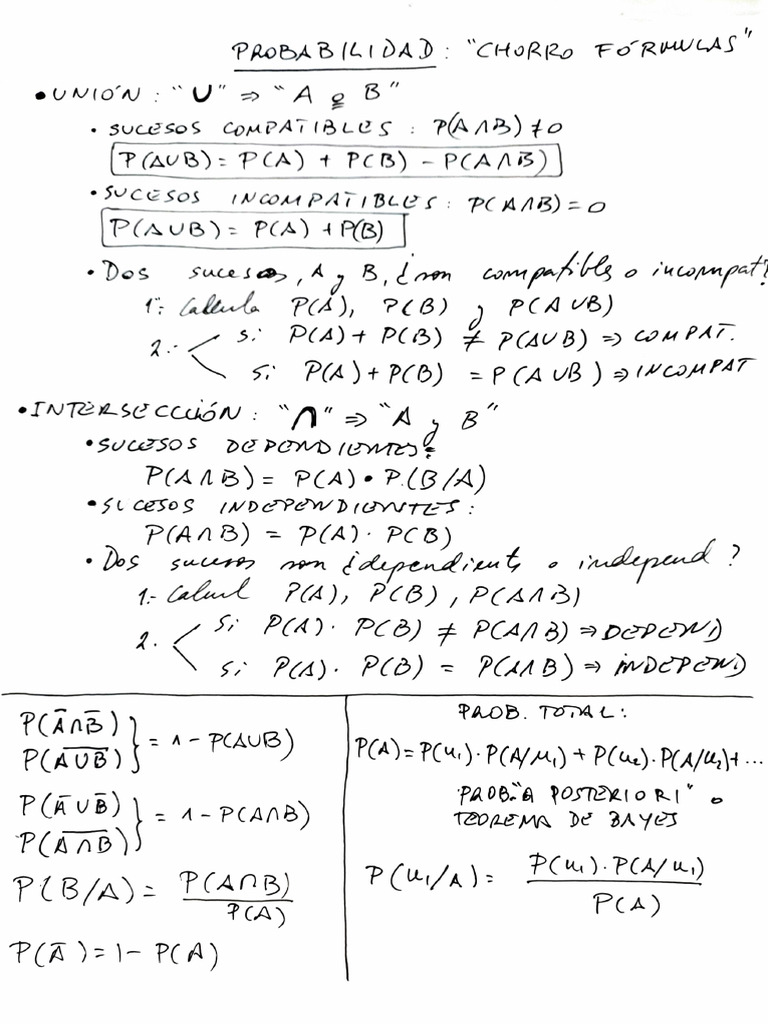 PROBABILIDAD: "CHORRO FÓRMULAS"
• UNIÓN: "U" ⇒ "A o B"
• SUCESOS COMPATIBLES: P(A∩B) ≠ 0
P(A∪B) = P(A) + P(B) - P(A∩B)
• SUCESOS INCOMPATIBLES: P(A∩B) = 0
P(A∪B) = P(A) + P(B)
• Dos sucesos, A y B, ¿son compatibles o incompat?
1º: Calcula P(A), P(B) y P(A∪B)
2.- si P(A) + P(B) ≠ P(A∪B) ⇒ COMPAT.
si P(A) + P(B) = P(A∪B) ⇒ INCOMPAT
• INTERSECCIÓN: "∩" ⇒ "A y B"
• SUCESOS DEPENDIENTES:
P(A∩B) = P(A) • P(B/A)
• SUCESOS INDEPENDIENTES:
P(A∩B) = P(A) · P(B)
• Dos sucesos son ¿dependients o independ?
1.- Calcul P(A), P(B), P(A∩B)
2. si P(A) · P(B) ≠ P(A∩B) ⇒ DEPEND
si P(A) · P(B) = P(A∩B) ⇒ INDEPEND
P(A̅∩B̅)
P(A∪B)‾ } = 1 - P(A∪B)
P(A̅∪B̅)
P(A∩B)‾ } = 1 - P(A∩B)
P(B/A) = P(A∩B) / P(A)
P(A̅) = 1 - P(A)
PROB. TOTAL:
P(A) = P(u₁)·P(A/u₁) + P(u₂)·P(A/u₂) + ...
PROB. "A POSTERIORI" o
TEOREMA DE BAYES
P(u₁/A) = P(u₁)·P(A/u₁) / P(A)